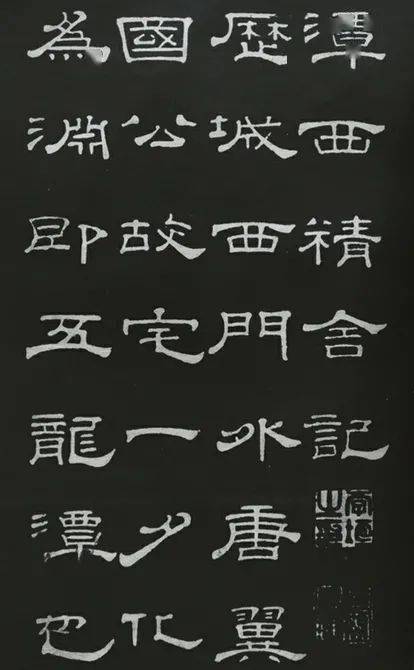 潭西精舍記
歷城西門外唐翼
國公故宅一夕化
為淵即五龍潭也